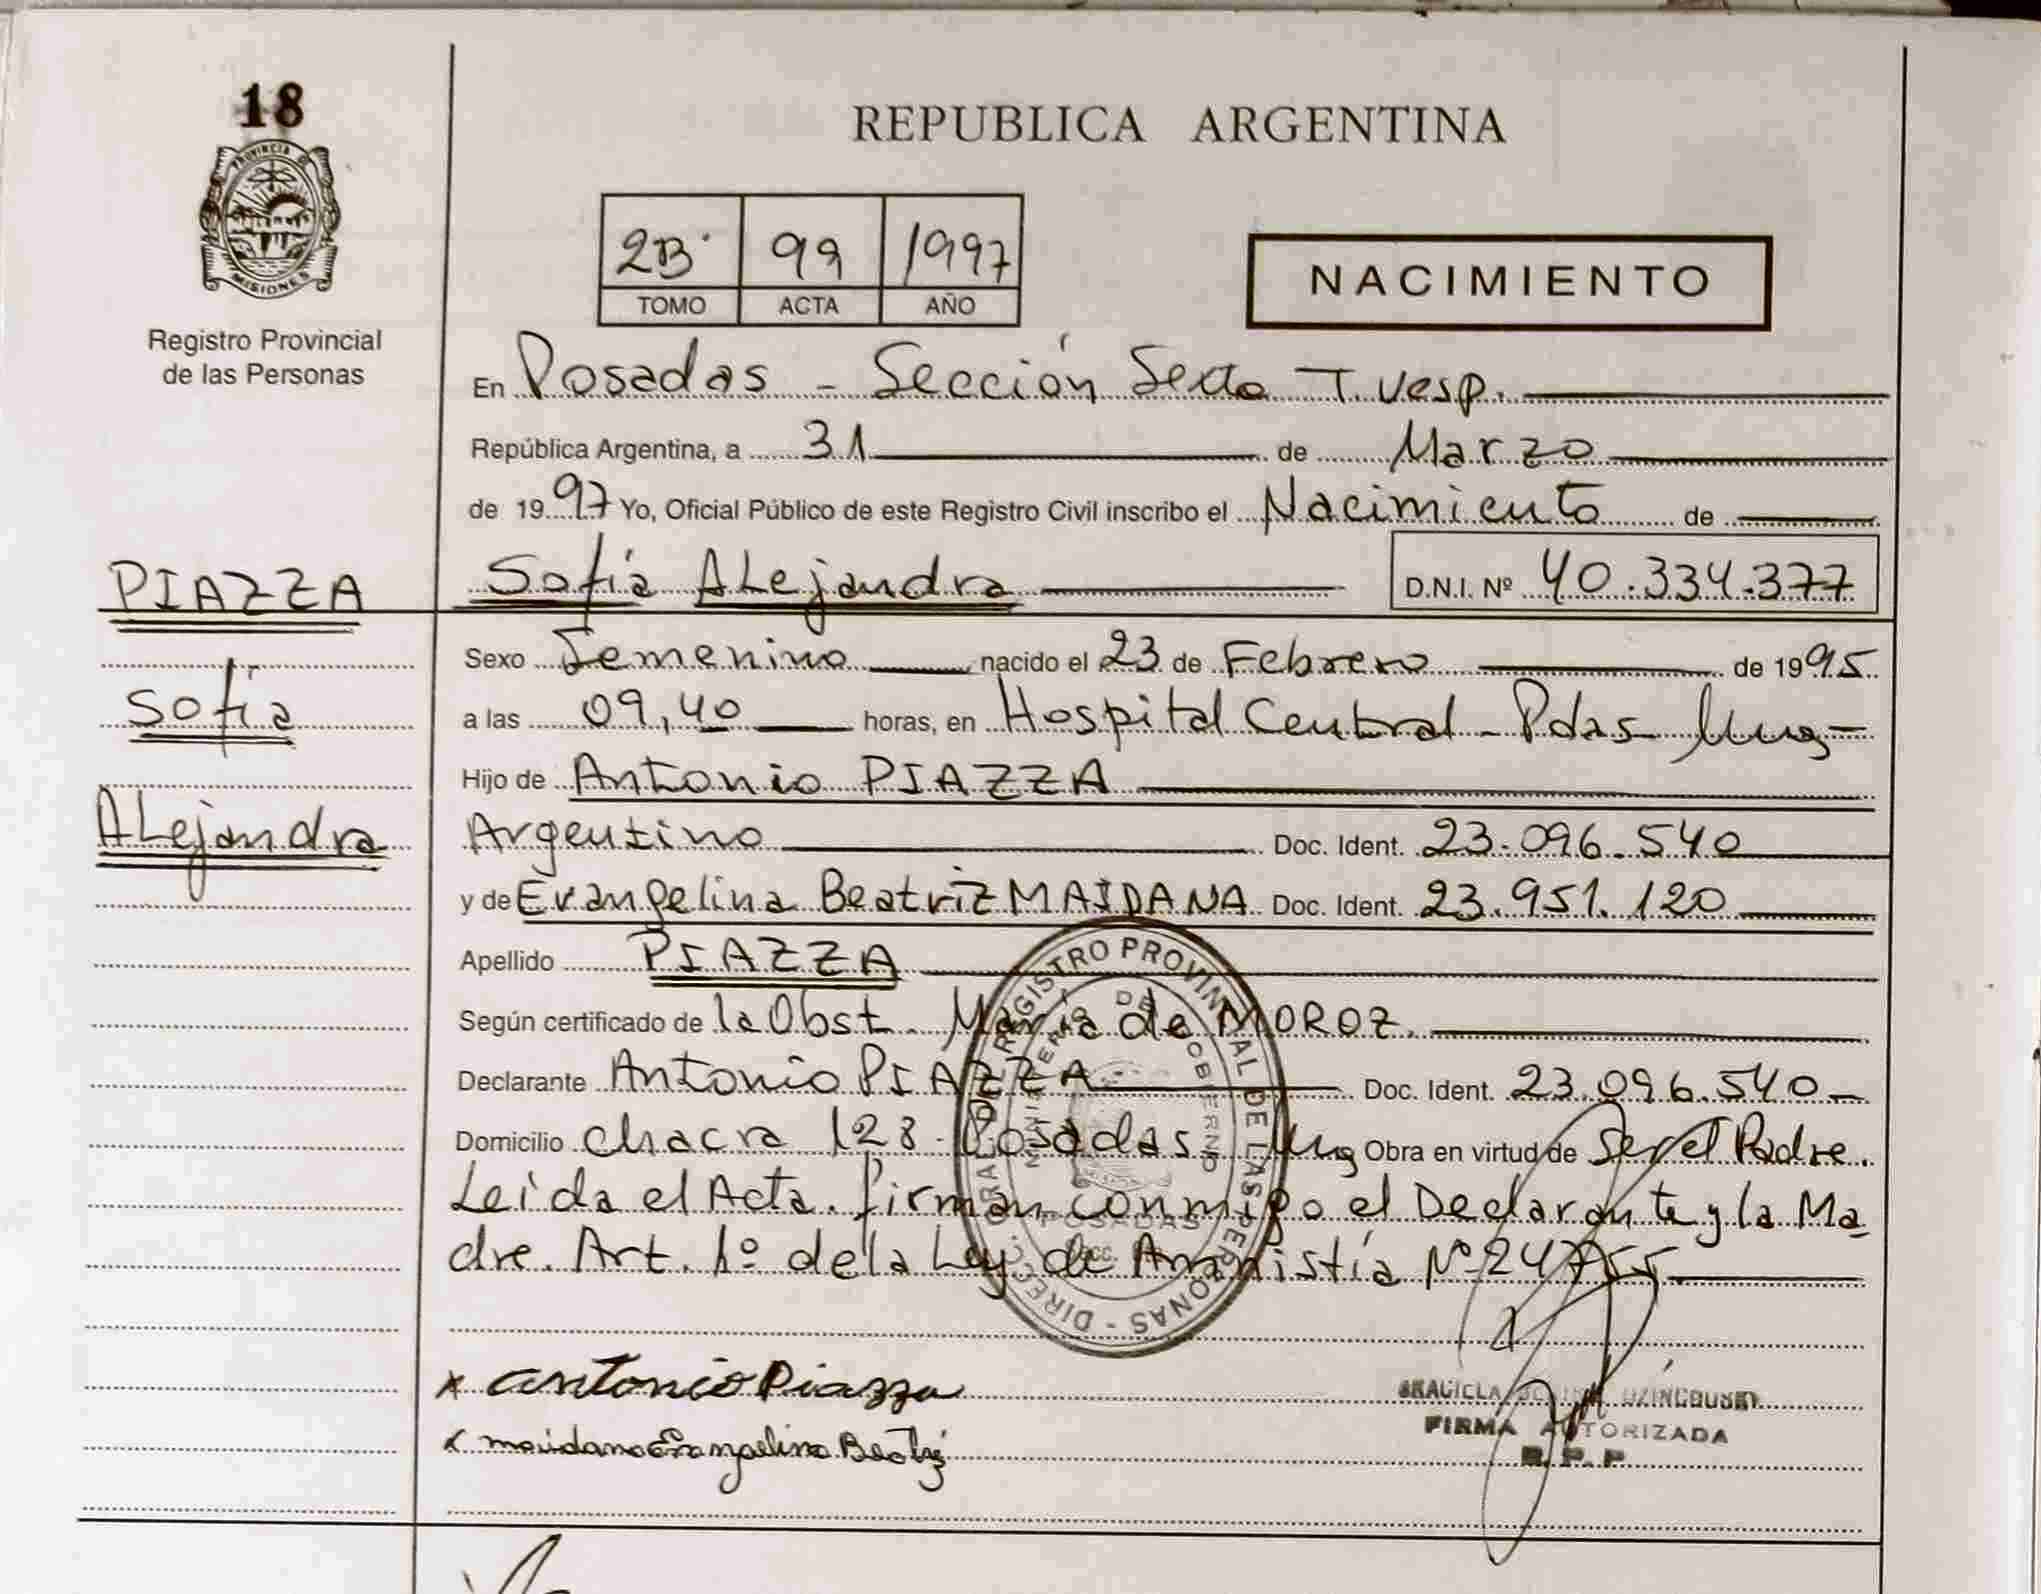 18
PROVINCIA DE
MISIONES
Registro Provincial
de las Personas
REPUBLICA ARGENTINA
2B 99 1997
TOMO ACTA AÑO
NACIMIENTO
En Posadas - Sección Sexta T. Vesp.
República Argentina, a 31 de Marzo
de 1997 Yo, Oficial Público de este Registro Civil inscribo el Nacimiento de
PIAZZA
Sofía Alejandra D.N.I. Nº 40.334.377
Sofía
Alejandra
Sexo Femenino nacido el 23 de Febrero de 1995
a las 09,40 horas, en Hospital Central - Pdas
Hijo de Antonio PIAZZA
Argentino Doc. Ident. 23.096.540
y de Evangelina Beatriz MAIDANA Doc. Ident. 23.951.120
Apellido PIAZZA
Según certificado de la Obst. María de MOROZ.
Declarante Antonio PIAZZA Doc. Ident. 23.096.540
Domicilio Chacra 128 - Posadas Obra en virtud de Ser el Padre.
Leida el Acta. firman conmigo el Declarante y la Ma
dre. Art. 1º de la Ley de Amnistía Nº 24755
DIRECC. GRAL DEL REGISTRO PROVINCIAL DE LAS PERSONAS -
MINISTERIO DE GOBIERNO
POSADAS
x Antonio Piazza
x maidana Evangelina Beatriz
FIRMA AUTORIZADA
R.P.P